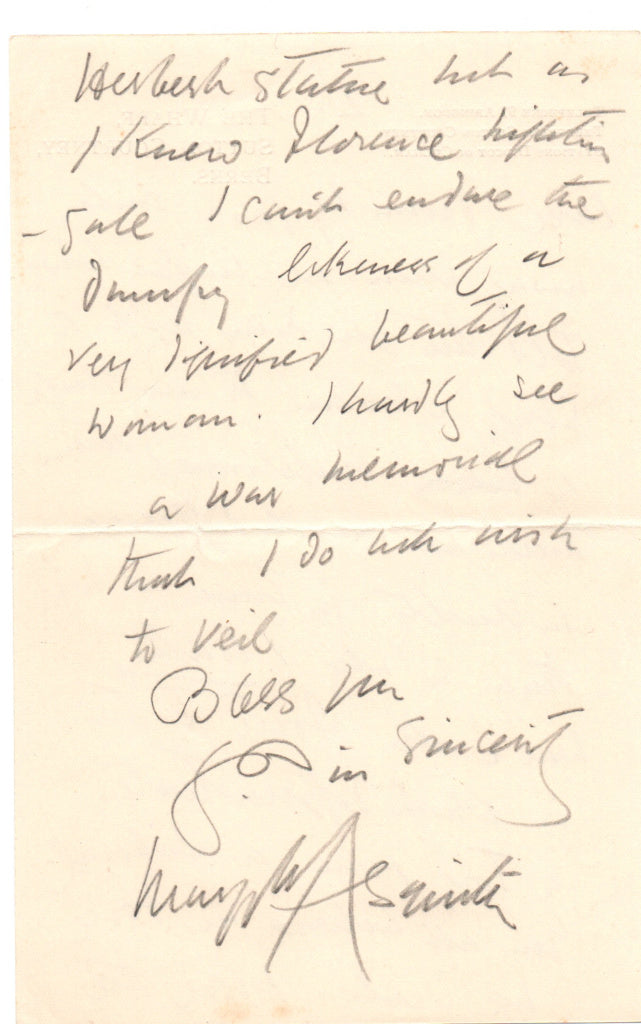 Herbert statue but as
I knew Florence Nightin
- gale I can't endure the
dumpy likeness of a
very dignified beautiful
woman. I hardly see
a war memorial
that I do not wish
to veil
Bless you
in sincerity
Margot Asquith